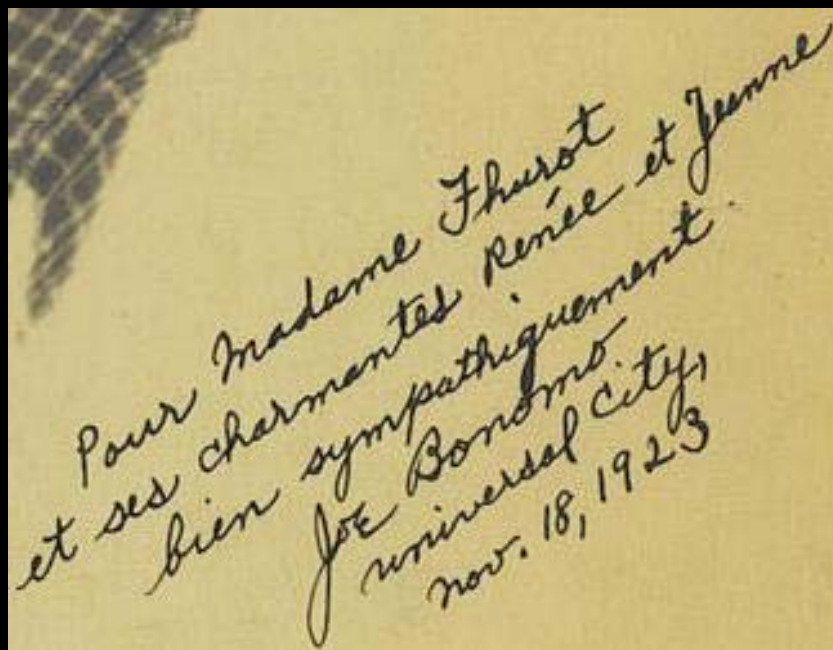 Pour Madame Thurot
et ses charmantes Renée et Jeanne
bien sympathiquement.
Joe Bonomo
Universal City,
Nov. 18, 1923